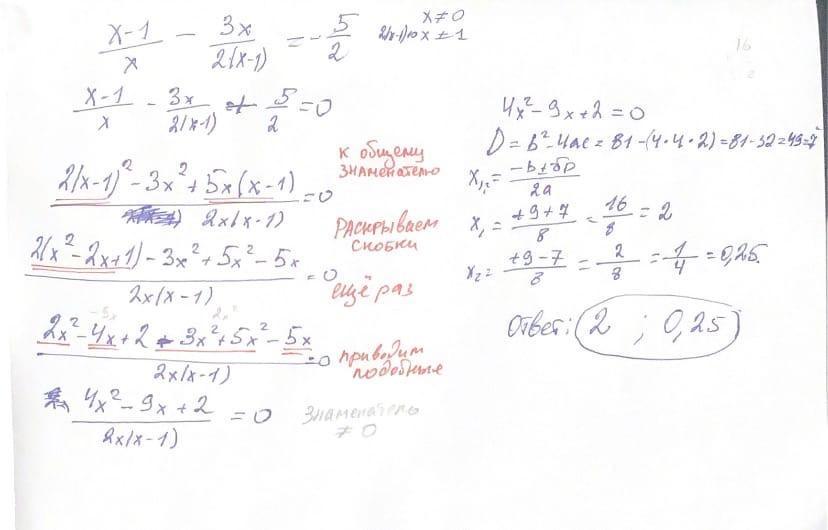 (x-1)/x - 3x/(2(x-1)) = -5/2   x≠0
2(x-1)≠0 x≠1
(x-1)/x - 3x/(2(x-1)) + 5/2 = 0
(2(x-1)² - 3x² + 5x(x-1))/(2x(x-1)) = 0
к общему
знаменателю
(2(x²-2x+1) - 3x² + 5x² - 5x)/(2x(x-1)) = 0
Раскрываем
скобки
ещё раз
-9x   2x²
(2x² - 4x + 2 - 3x² + 5x² - 5x)/(2x(x-1)) = 0
приводим
подобные
(4x² - 9x + 2)/(2x(x-1)) = 0
Знаменатель
≠ 0
16
4x² - 9x + 2 = 0
D = b² - 4ac = 81 - (4·4·2) = 81 - 32 = 49 = 7²
x₁,₂ = (-b ± √D)/2a
x₁ = (+9+7)/8 = 16/8 = 2
x₂ = (+9-7)/8 = 2/8 = 1/4 = 0,25.
Ответ: (2 ; 0,25)